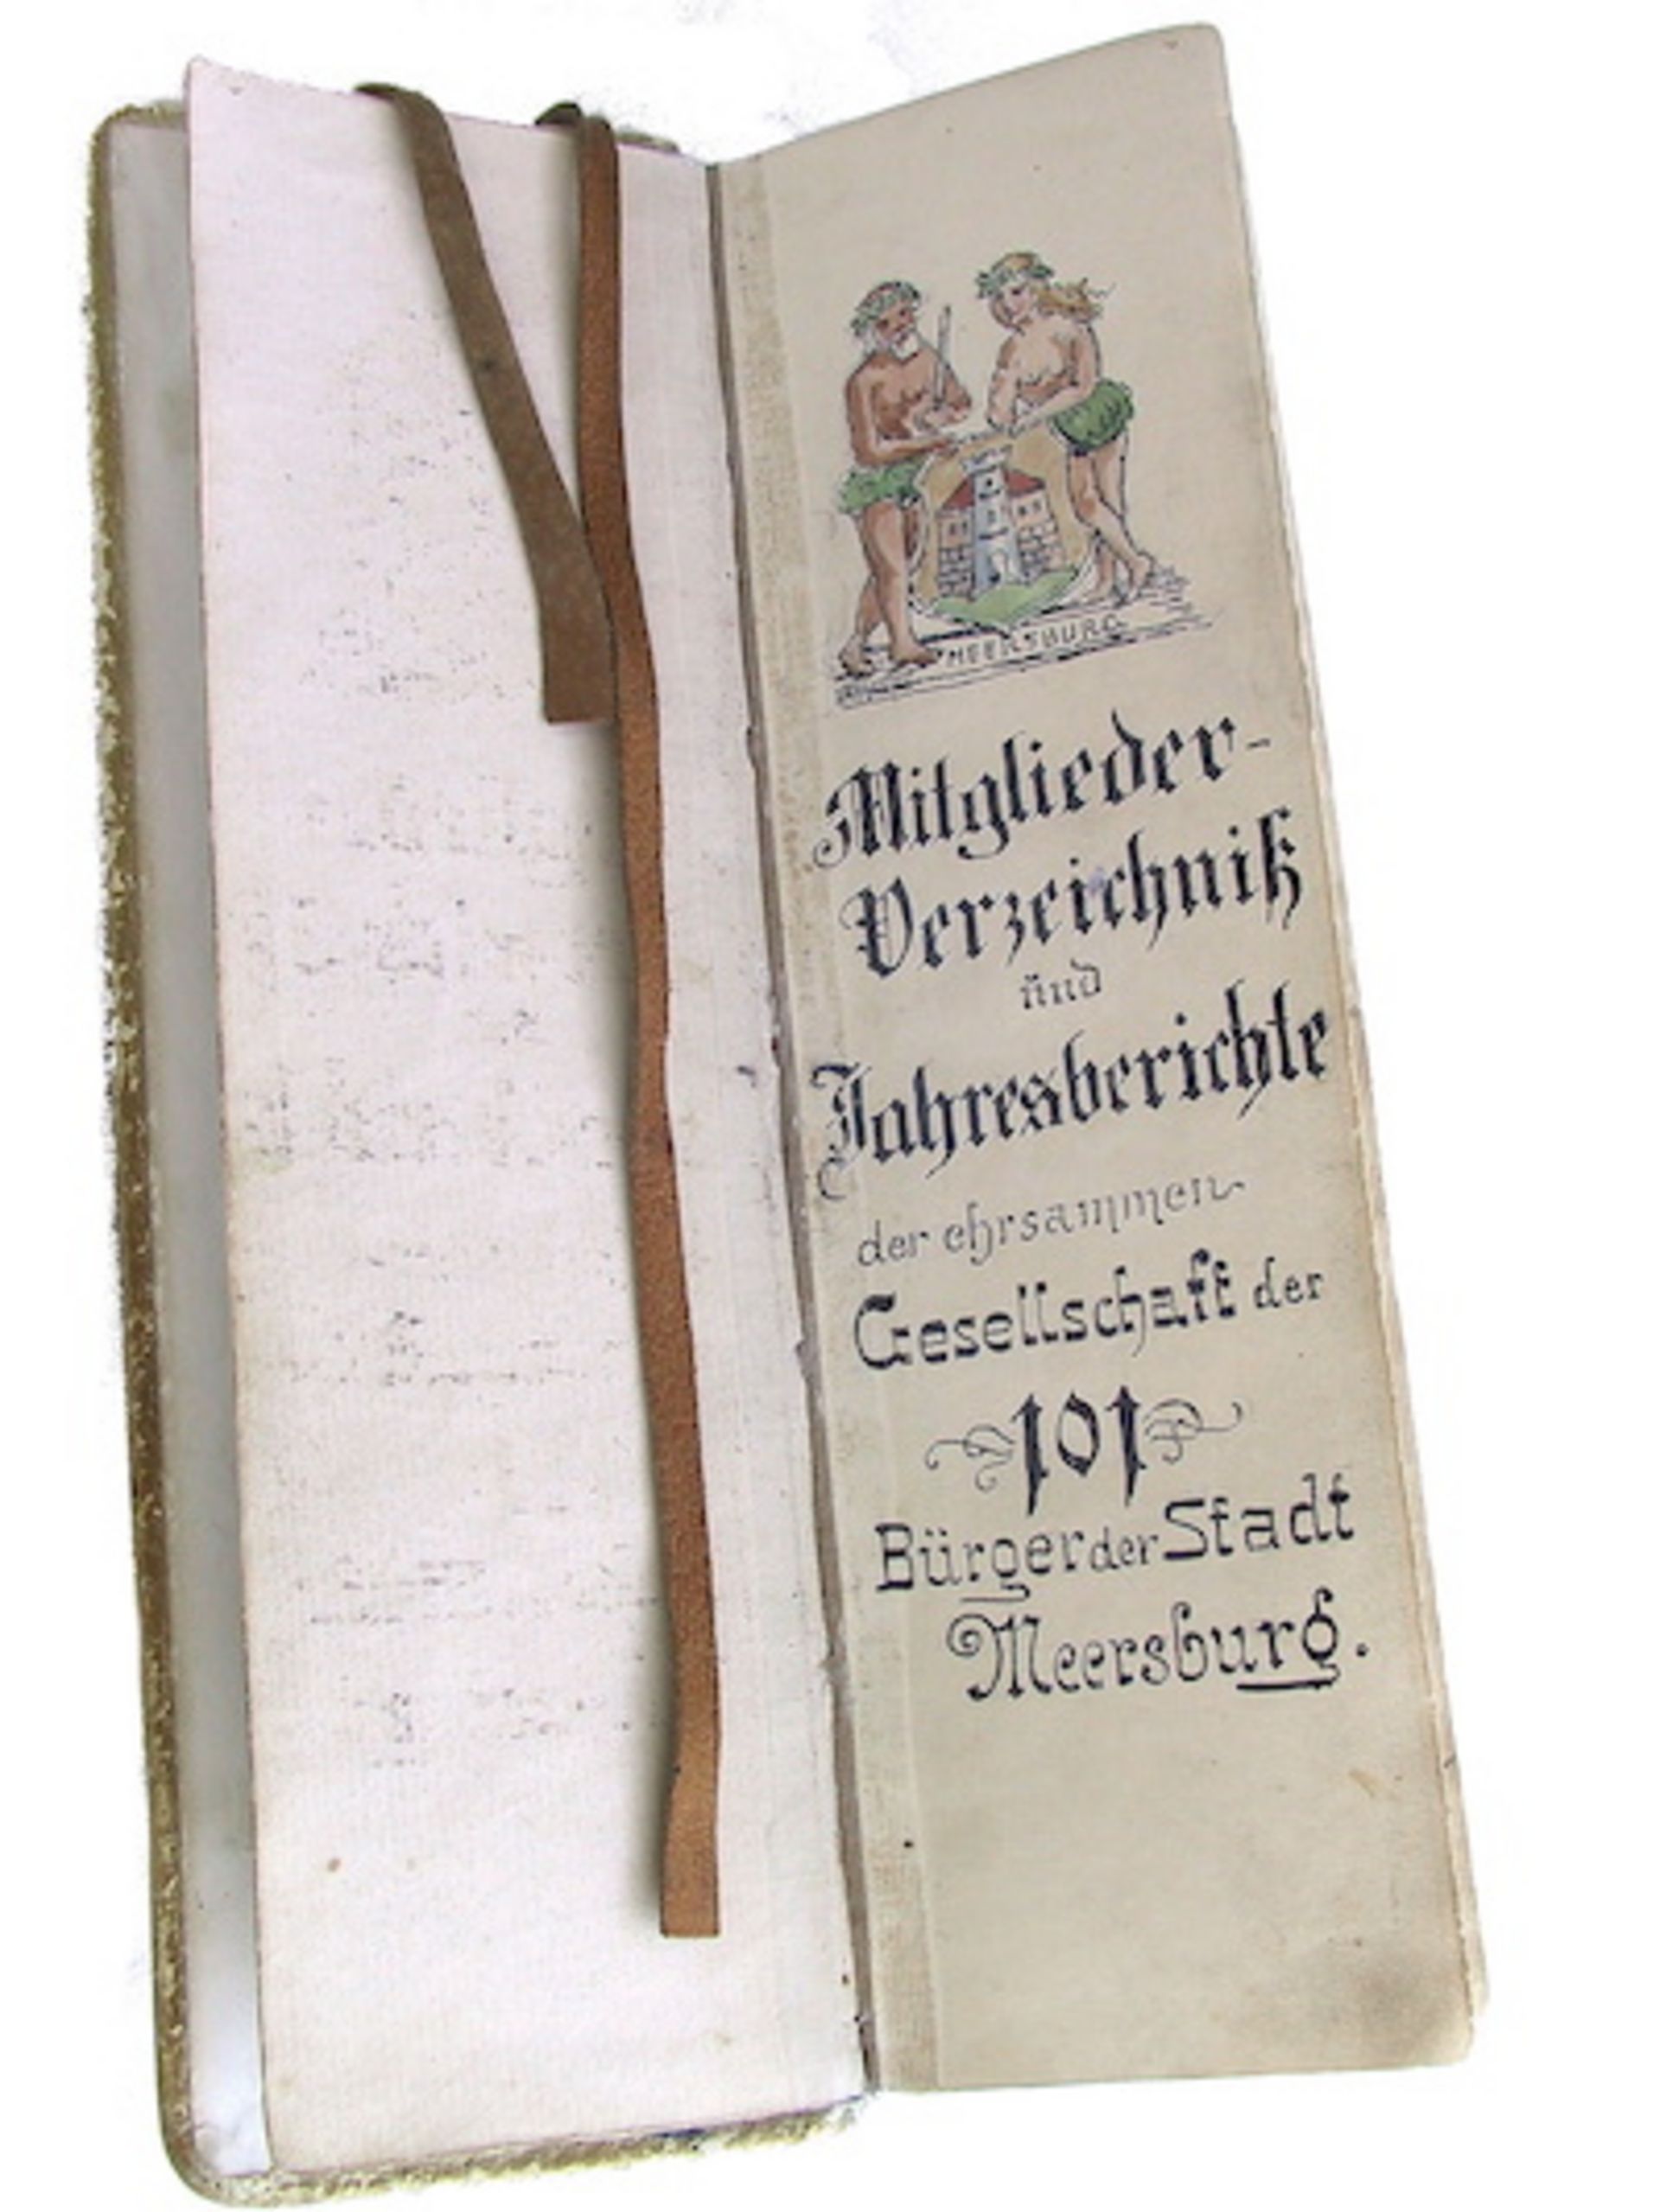 MEERSBURG
Mitglieder-
Verzeichniß
und
Jahresberichte
der ehrsammen
Gesellschaft der
101
Bürger der Stadt
Meersburg.